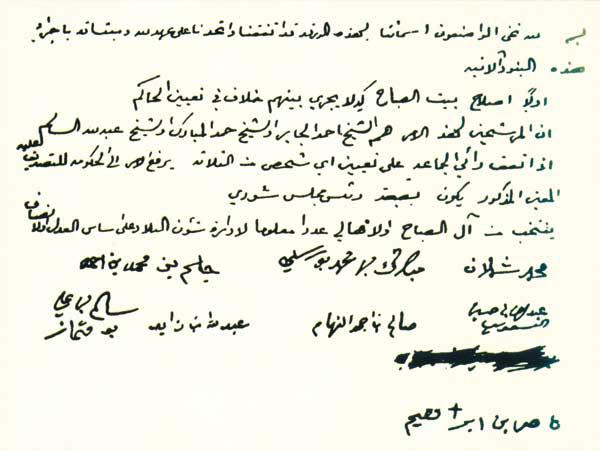 نحن الواضعون اسمائنا بهذه الورقة قد اتفقنا واتحدنا على عهد الله وميثاقه باجراء
هذه البنود الآتية
اولاً اصلاح بيت الصباح كي لا يجري بينهم خلاف في تعيين الحاكم
ان المرشحين لهذا الامر هم الشيخ احمد الجابر والشيخ حمد المبارك والشيخ عبدالله السالم
اذا اتفق رأي الجماعه على تعيين اي شخص من الثلاثه يرفع امره الى الحكومه للتصديق عليه
المعين المذكور يكون بصفة رئيس مجلس شوري
ينتخب من آل الصباح والاهالي عددا معلوما لادارة شئون البلاد على اساس العدل والانصاف
محمد شملان مبارك بن محمد بورسلي جاسم بن محمد بن احمد
صالح بن احمد النهام عبدالله بن زايد سالم بن علي بوقماز
ابراهيم